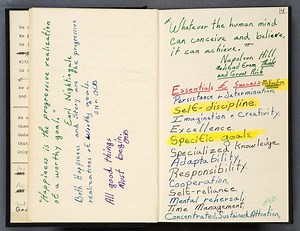 "Happiness is the progressive realization
of a worthy goal."
Earl Nightingale
Both Happiness and Story are the progressive
realizations of worthy
All good things
Must begin.
"Whatever the human mind
can conceive and believe,
it can achieve."
Napoleon Hill
and Grow Rich
Essentials of Success
Persistance + determination
Self-discipline.
Imagination + Creativity.
Excellence.
Specific goals.
Specialized Knowledge
Adaptability.
Responsibility.
Cooperation
Self-reliance.
Mental rehersal.
Time Management
Concentrated, Sustained Attention.